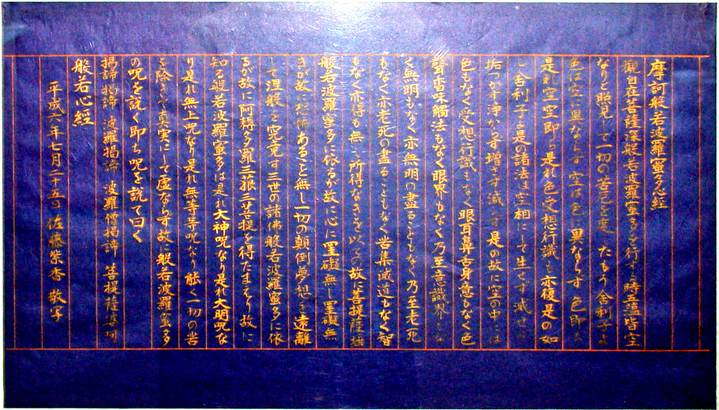 摩訶般若波羅蜜多心経
観自在菩薩深般若波羅蜜多を行ずる時五蘊皆空
なりと照見して一切の苦厄を度したもう舎利子よ
色は空に異ならず空は色に異ならず色即ち
是れ空空即ち是れ色受想行識も亦復是の如
し舎利子よ是の諸法は空相にして生ぜず滅せず
垢つかず浄からず増さず減らず是の故に空の中には
色もなく受想行識もなく眼耳鼻舌身意もなく色
聲香味觸法もなく眼界もなく乃至意識界もな
く無明もなく亦無明の盡ることもなく乃至老死
もなく亦老死の盡ることもなく苦集滅道もなく智
もなく亦得も無し所得なきを以ての故に菩提薩埵
般若波羅蜜多に依るが故に心に罣礙無し罣礙無
きが故に恐怖あること無し一切の顛倒夢想を遠離
して涅槃を究竟す三世の諸佛般若波羅蜜多に依
るが故に阿耨多羅三藐三菩提を得たまえり故に
知る般若波羅蜜多は是れ大神呪なり是れ大明呪な
り是れ無上呪なり是れ無等等呪なり能く一切の苦
を除き真実にして虚ならず故に般若波羅蜜多
の呪を説く即ち呪を説て曰く
揭諦揭諦 波羅揭諦 波羅僧揭諦 菩提薩婆訶
般若心経
平成六年七月二十五日 佐藤紫香 敬写